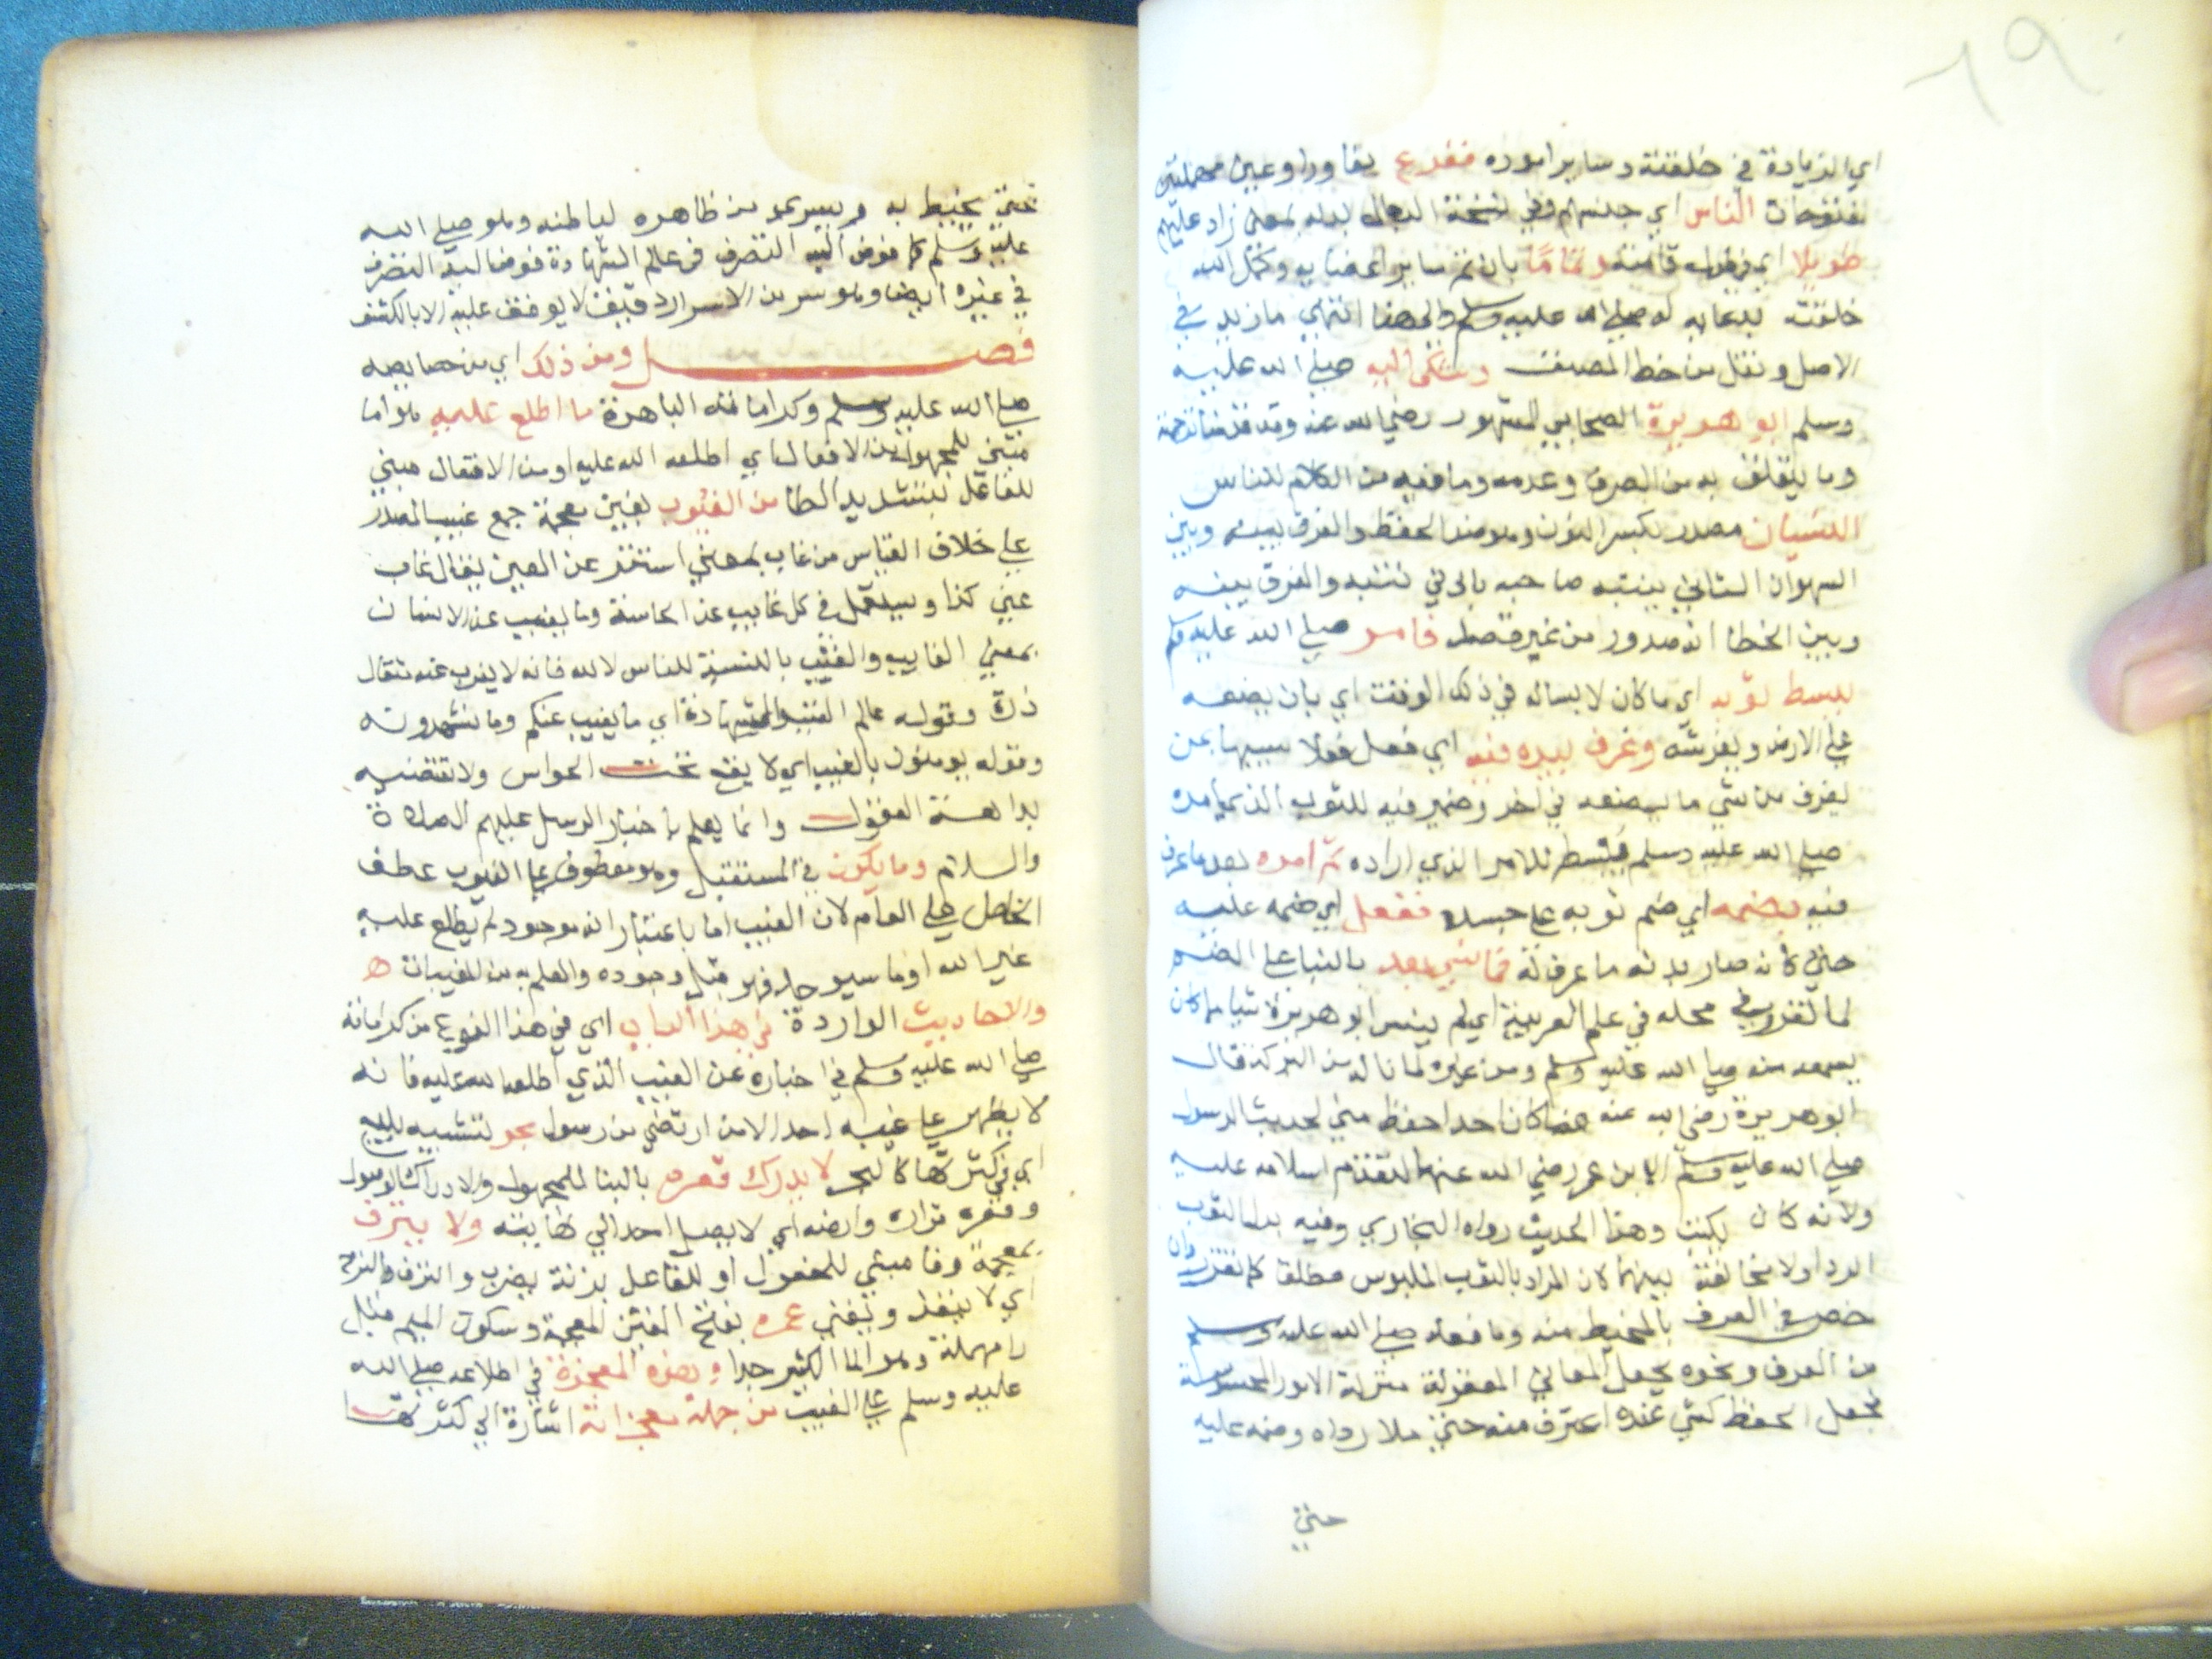 ٦٩
اي الزيادة في خلقته وسائر اموره ففرع بفا ورا وعين مهملتين
مفتوحات الناس اي جلسهم وفي نسخة الرجال بدله بمعنى زاد عليهم
طولا اي في طول قامته وتماما بان تم سائر اعضايه وكمل الله
خلقته بدعايه له صلي الله عليه وسلم والى هنا انتهي ما زيد في
الاصل ونقل من خط المصنف وشكى اليه صلي الله عليه
وسلم ابو هريرة الصحابي المشهور رضي الله عنه وقد قدمنا ترجمته
وما يتعلق به من الصرف وعدمه وما فيه من الكلام للناس
النسيان مصدر بكسر النون وهو ضد الحفظ والفرق بينه وبين
السهوان الثاني ينتبه صاحبه بادني تنبه والفرق بينه
وبين الخطا انه صدور من غير قصد فامر صلي الله عليه وسلم
ببسط ثوبه اي ما كان لابساله في ذلك الوقت اي بان يضعه
علي الارض ويفرشه وغرف بيده فيه اي فعل فعلا شبيها بمن
يغرف من شي ما يضعه في اخر وضمير فيه للثوب الذي امره
صلي الله عليه وسلم ببسطه للامر الذي اراده ثم امره بعد ما غرف
فيه بضمه اي ضم ثوبه علي جسده ففعل اي ضمه عليه
حتي كانه صار بدنه ما غرف له فما نسي بعد بالبنا علي الضم
لما تقرر في محله في علم العربية اي لم ينس ابو هريرة شيا مما كان
يسمعه منه صلي الله عليه وسلم ومن غيره لما ناله من البركة قال
ابو هريرة رضي الله عنه فما كان احد احفظ مني لحديث الرسول
صلي الله عليه وسلم الا ابن عمر رضي الله عنهما لتقدم اسلامه عليه
ولانه كان يكتب وهذا الحديث رواه البخاري وفيه بدل الثوب
الردا ولا مخالفة بينهما لان المراد بالثوب الملبوس مطلقا كما تقرر وان
خص في العرف بالمخيط منه وما فعله صلي الله عليه وسلم
من الغرف ونحوه بجعل المعاني المعقولة منزلة الامور المحسوسة
فجعل الحفظ كشي عنده اغترف منه حتي ملا رداه وضمه عليه
حتي
حتي يحيط به ويسري من ظاهره لباطنه وهو صلي الله
عليه وسلم كما فوض اليه التصرف في عالم الشهادة فوض اليه التصرف
في غيره ايضا وهو سر من الاسرار دقيق لا يوقف عليه الا بالكشف
فصل ومن ذلك اي من خصايصه
صلي الله عليه وسلم وكراماته الباهرة ما اطلع عليه هو اما
مبني للمجهول من الافعال اي اطلعه الله عليه او من الافتعال مبني
للفاعل بتشديد الطا من الغيوب بغين معجمة جمع غيب المصدر
علي خلاف القياس من غاب بمعني استتر عن العين يقال غاب
عني كذا ويستعمل في كل غايب عن الحاسة وما يغيب عن الانسان
بمعني الغايب والغيب بالنسبة للناس لا لله فانه لا يغرب عنه مثقال
ذرة وقوله عالم الغيب والشهادة اي ما يغيب عنكم وما تشهدونه
وقوله يومنون بالغيب اي لا يقع تحت الحواس ولا تقتضيه
بداهة العقول وانما يعلم باخبار الرسل عليهم الصلاة
والسلام وما يكون في المستقبل وهو معطوف علي الغيوب عطف
الخاص علي العام لان الغيب اما باعتبار انه موجود لم يطلع عليه
غير الله او ما سيوجد فهو قبل وجوده والعلم به من المغيبات ه
والاحاديث الواردة في هذا الباب اي في هذا النوع من كراماته
صلي الله عليه وسلم في اخباره عن الغيب الذي اطلعه الله عليه فانه
لا يظهر علي غيبه احدا الا من ارتضي من رسول بحر تشبيه بليغ
اي في كثرتها كالبحر لا يدرك قعره بالبنا للمجهول والادراك الوصول
وقعره قراره وارضه اي لا يصل احد الي نهايته ولا ينزف
بمعجمة وفا مبني للمفعول او للفاعل بزنة يضرب والنزف والنزح
اي لا ينفد ويفني غمره بفتح الغين المعجمة وسكون الميم قبل
را مهملة وهو الما الكثير جدا وهذه المعجزة في اطلاعه صلي الله
عليه وسلم علي الغيب من جملة معجزاته اشارة الي كثرتها